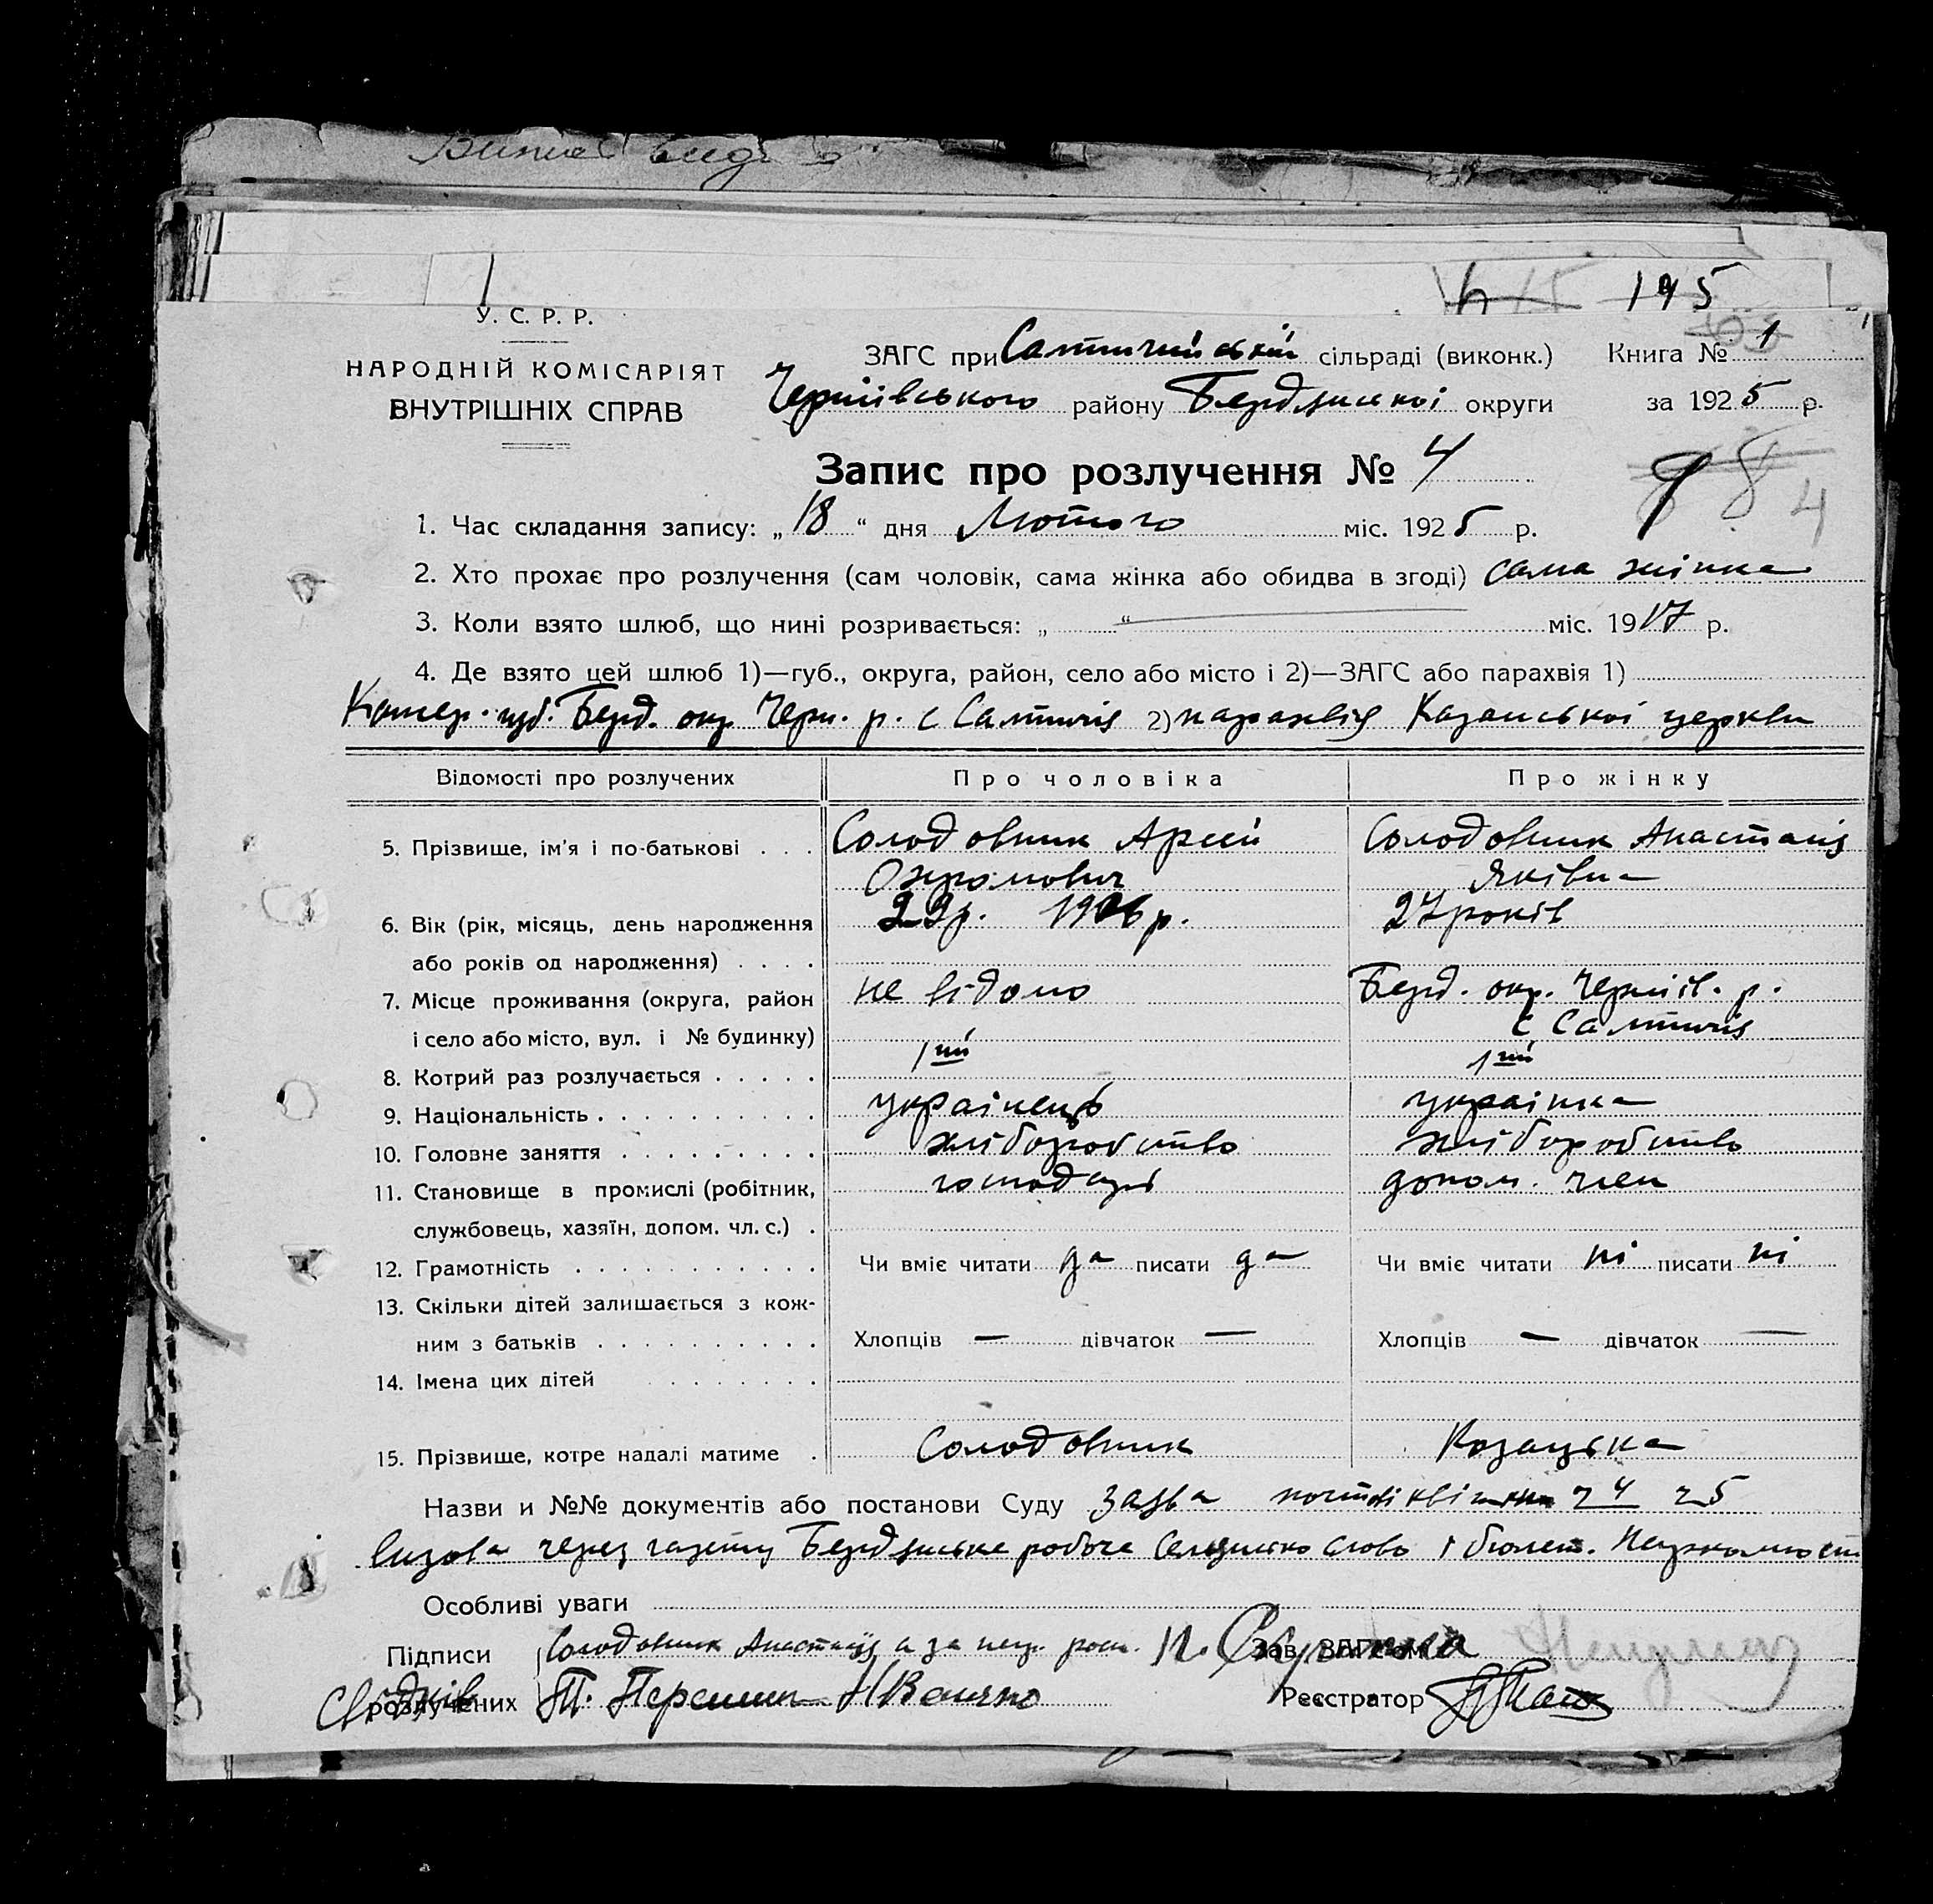 У. С. Р. Р.
НАРОДНІЙ КОМІСАРІЯТ
ВНУТРІШНІХ СПРАВ
195
ЗАГС при Салтичийській сільраді (виконк.) Книга № 1
Черніївського району Бердянської округи за 1925 р.
Запис про розлучення № 4
1. Час складання запису: „18“ дня Лютого міс. 1925 р.
2. Хто прохає про розлучення (сам чоловік, сама жінка або обидва в згоді) сама жінка
3. Коли взято шлюб, що нині розривається: „ “ міс. 1917 р.
4. Де взято цей шлюб 1)—губ., округа, район, село або місто і 2)—ЗАГС або парахвія 1)
губ. Берд. окр. Черн. р. с Салтичія 2) парахвія Казанської церкви
Відомості про розлучених Про чоловіка Про жінку
5. Прізвище, ім'я і по-батькові . . . Солодовник Арсей Солодовник Анастасія
Яківна
6. Вік (рік, місяць, день народження 27 років
або років од народження) . . . .
7. Місце проживання (округа, район не відомо Берд. окр. Черніїв. р.
і село або місто, вул. і № будинку) с Салтичія
8. Котрий раз розлучається . . . . . 1ий 1ий
9. Національність . . . . . . . . . . українець українка
10. Головне заняття . . . . . . . . . хліборобство хліборобство
11. Становище в промислі (робітник, господарь допом. член
службовець, хазяїн, допом. чл. с.) .
12. Грамотність . . . . . . . . . . . Чи вміє читати да писати да Чи вміє читати ні писати ні
13. Скільки дітей залишається з кож-
ним з батьків . . . . . . . . . . Хлопців — дівчаток — Хлопців — дівчаток —
14. Імена цих дітей . . . . . . . .
15. Прізвище, котре надалі матиме . Солодовник Козацька
Назви и №№ документів або постанови Суду Заява
визова через газету Бердянське робоче Селянсько слово і бюлет.
Особливі уваги
Підписи Солодовник Анастасія а за нещ. росп. Зав. ЗАГСом
Свідків розлучених Реєстратор